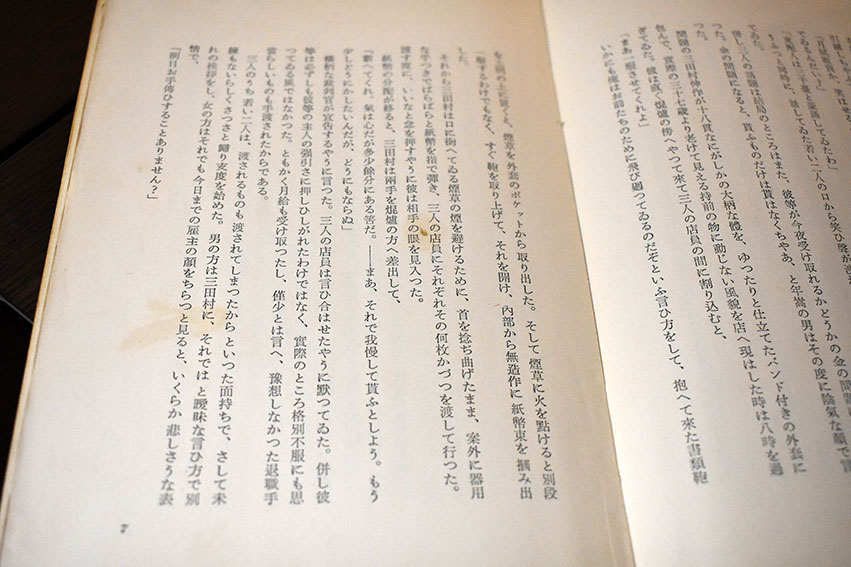 「月給
てゐるんだい！」
「支配人は二千圓と豪語してゐたわ」
うふっと同時に、話してゐた若い二人の口から笑ひ聲が
てゐた。
併し三人の話題は結局のところはまた、彼等が今夜受け取れるかどうかの金の問題に
った。金の問題になると、貰ふものだけは貰はなくちゃあ、と年嵩の男はその度に陰氣な顔で言
問題の三田村伸作が十八貫なにがしかの大柄な體を、ゆつたりと仕立てたバンド付きの外套に
包んで、實際の三十七歳より老けて見える持前の物に動じない風貌を店へ現はした時は八時を過
ぎてゐた。彼は直ぐ焜爐の傍へやつて來て三人の店員の間に割り込むと、
「まあ一服させてくれよ」
いかにも俺はお前たちのために飛び廻つてゐるのだぞといふ言ひ方をして、抱へて來た書類鞄
を土間の上に置くと、煙草を外套のポケットから取り出した。そして煙草に火を點けると別段
一服するわけでもなく、すぐ鞄を取り上げて、それを開け、內部から無造作に紙幣束を摑み出
した。
それから三田村は口に銜へてゐる煙草の煙を避けるために、首を捻ぢ曲げたまま、案外に器用
な手つきでばらばらと紙幣を指で彈き、三人の店員にそれぞれその何枚かづつを渡して行つた。
渡す度に、いいなと念を押すやうに彼は相手の眼を見入つた。
紙幣の分配が終ると、三田村は兩手を焜爐の方へ差出して、
「數へてくれ。氣は心だが多少餘分にある筈だ。――まあ、それで我慢して貰ふとしよう。もう
少しどうにかしたいんだが、どうにもならぬ」
橫柄な裁判官が宣告するやうに言つた。三人の店員は言ひ合はせたやうに默つてゐた。併し彼
等は必ずしも彼等の主人の强引さに押しひしがれたわけではなく、實際のところ格別不服にも思
つてゐる風ではなかつた。ともかく月給も受け取つたし、僅少とは言へ、豫想しなかつた退職手
當らしいものも手渡されたからである。
三人のうち若い二人は、渡されるものも渡されてしまつたからといつた面持ちで、さして未
練もないらしくさつさと歸り支度を始めた。男の方は三田村に、それではと曖昧な言ひ方で別
れの挨拶をし、女の方はそれでも今日までの雇主の顔をちらつと見ると、いくらか悲しさうな表
情で、
「明日お手傳ひすることありません？」
7